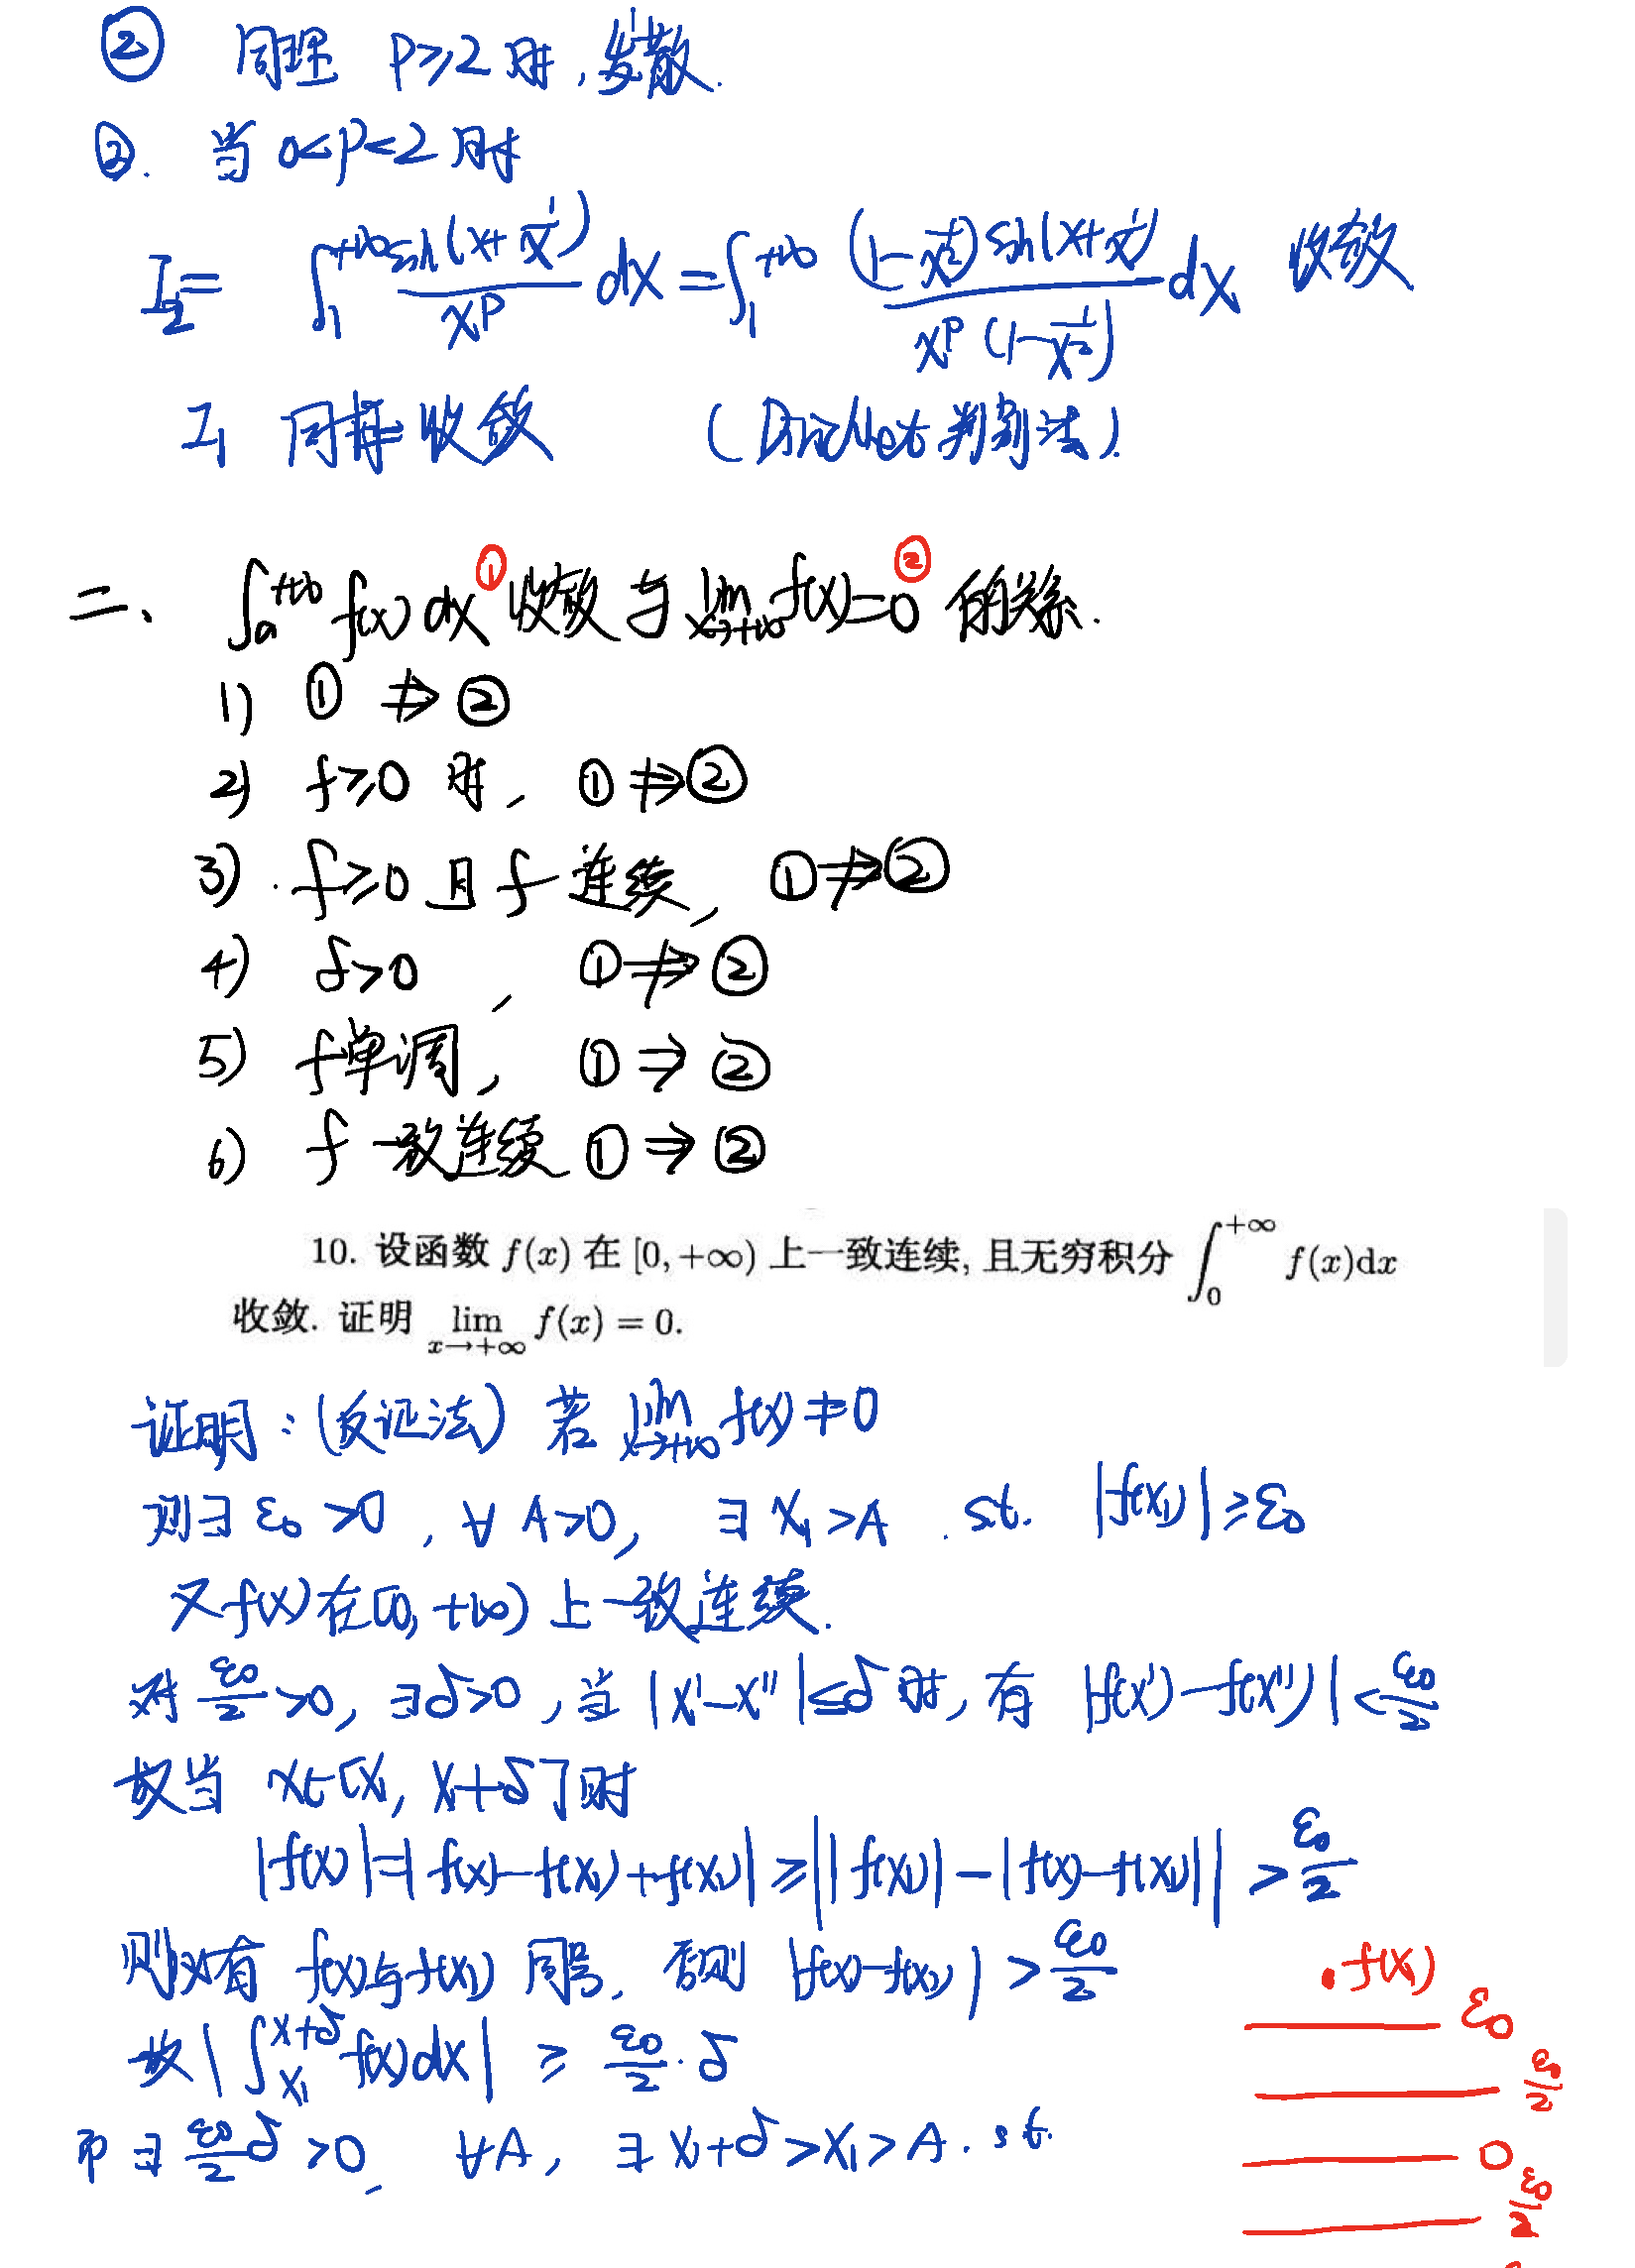 ② 同理 P≥2 时,发散.
②. 当 0<P<2 时
I₂= ∫₁^{+∞} sin(x+1/x)/x^P dx = ∫₁^{+∞} (1-1/x²) sin(x+1/x) / (x^P (1-1/x²)) dx 收敛
I₁ 同样收敛 (Dirichlet 判别法)
二、 ∫ₐ^{+∞} f(x) dx ① 收敛 与 lim_{x→+∞} f(x)=0 ② 的关系.
1) ① ⇏ ②
2) f≥0 时, ① ⇏ ②
3). f≥0 且 f 连续, ① ⇏ ②
4) f>0, ① ⇏ ②
5) f 单调, ① ⇒ ②
6) f 一致连续 ① ⇒ ②
10. 设函数 f(x) 在 [0,+∞) 上一致连续, 且无穷积分 ∫₀^{+∞} f(x)dx
收敛. 证明 lim_{x→+∞} f(x) = 0.
证明:(反证法) 若 lim_{x→+∞} f(x) ≠ 0
则 ∃ ε₀ >0, ∀ A>0, ∃ x₁ >A. st. |f(x₁)| ≥ε₀
又 f(x) 在[0,+∞) 上一致连续.
对 ε₀/2 >0, ∃δ>0, 当 |x'-x''|≤δ 时, 有 |f(x')-f(x'')| < ε₀/2
故当 x∈[x₁, x₁+δ] 时
|f(x)|=|f(x)-f(x₁)+f(x₁)| ≥ ||f(x₁)| - |f(x)-f(x₁)|| > ε₀/2
则必有 f(x)与f(x₁) 同号, 否则 |f(x)-f(x₁)| > ε₀/2
故 |∫_{x₁}^{x₁+δ} f(x)dx| ≥ ε₀/2 · δ
即 ∃ ε₀/2 δ >0, ∀A, ∃ x₁+δ >x₁> A. st.
.f(x₁)
ε₀
ε₀/2
0
ε₀/2